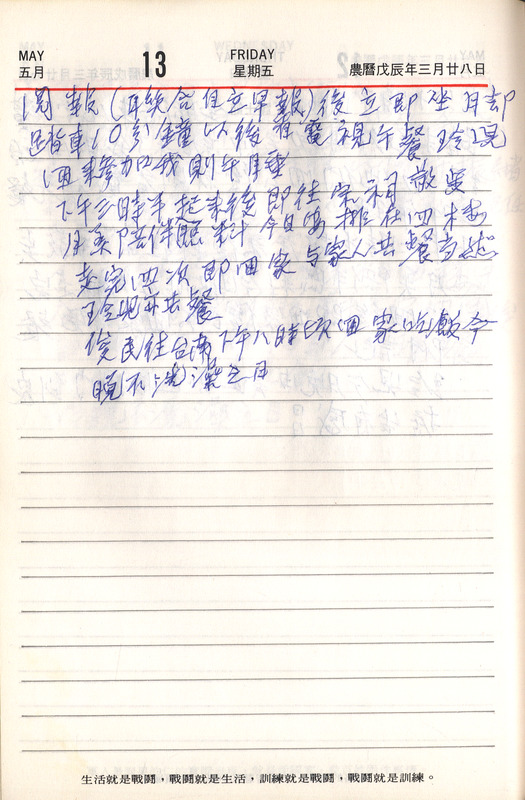 MAY 13 FRIDAY
五月 星期五 農曆戊辰年三月廿八日
閱報(聯合自立早報)後立即坐
踏車10分鐘以後看電視午餐玲琨
回來參加我則午睡
下午三時半起來後即往宗祠敬
陪伴照料今日安排在四樓
走完四次即回家與家人共餐當然
玲琨亦共餐
俊民往台南下午八時頃回家吃飯今
晚不洗澡
生活就是戰鬪,戰鬪就是生活,訓練就是戰鬪,戰鬪就是訓練。